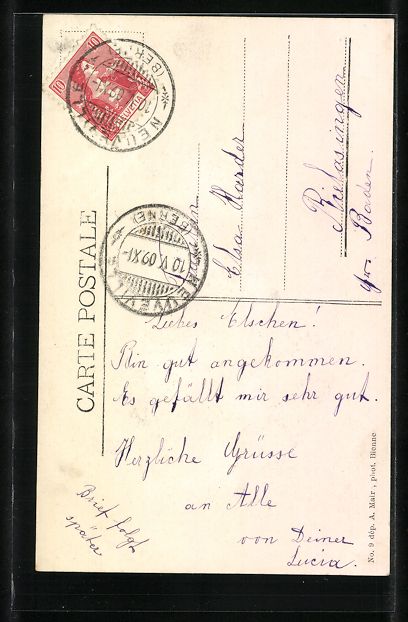 CARTE POSTALE
10
NEUVEVILLE
(BERNE)
10 V. 09 XI-
NEUVEVILLE
(BERNE)
Elsa Harder
Rielasingen
Baden.
Liebes Elschen!
Bin gut angekommen.
Es gefällt mir sehr gut.
Herzliche Grüsse
an Alle
von Deiner
Lucia.
Brief folgt
später
No. 9 dép. A. Mair, phot. Bienne